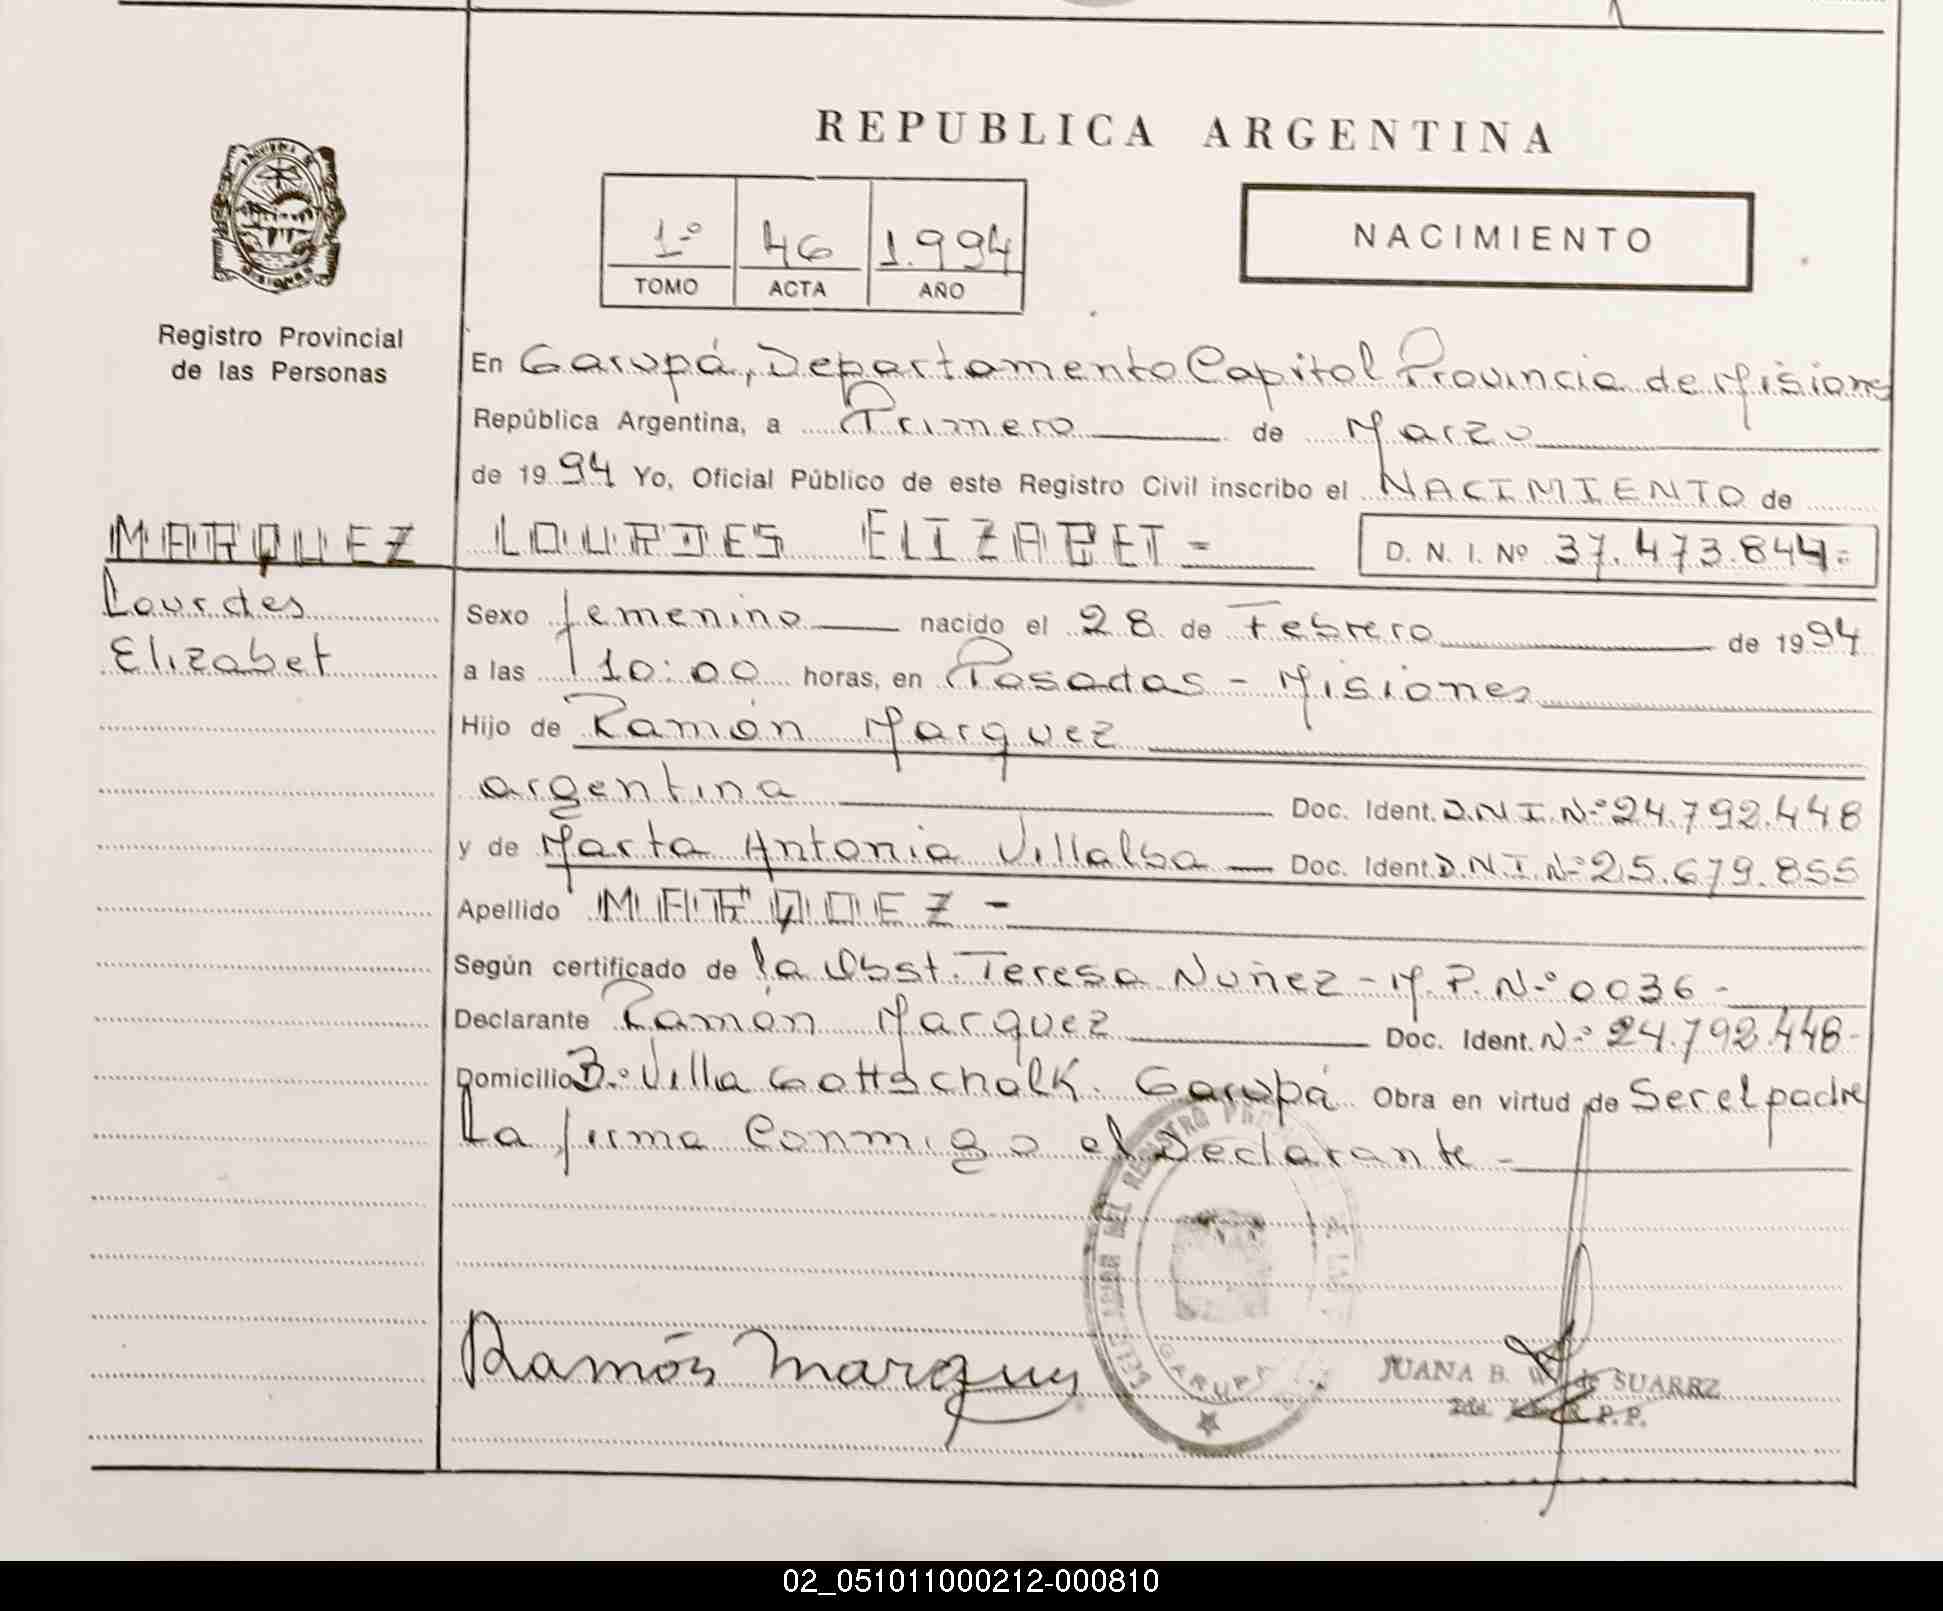 REPUBLICA ARGENTINA
1º 46 1.994
TOMO ACTA AÑO
NACIMIENTO
Registro Provincial
de las Personas
En Garupá, Departamento Capital Provincia de Misiones
República Argentina, a Primero de Marzo
de 1994 Yo, Oficial Público de este Registro Civil inscribo el NACIMIENTO de
MARQUEZ LOURDES ELIZABET = D. N. I. Nº 37.473.844=
Lourdes
Elizabet
Sexo femenino nacido el 28 de Febrero de 1994
a las 10:00 horas, en Posadas - Misiones
Hijo de Ramón Marquez
argentina Doc. Ident. D.N.I.Nº 24.792.448
y de Marta Antonia Villalba Doc. Ident. D.N.I.Nº 25.679.855
Apellido MARQUEZ -
Según certificado de la Obst. Teresa Nuñez - M.P.Nº 0036 -
Declarante Ramón Marquez Doc. Ident. Nº 24.792.448-
Domicilio Bº Villa Gottschalk. Garupá Obra en virtud de Ser el padre
La firma Conmigo el Declarante -
Ramón Marquez
DEL REGISTRO
GARUPA
JUANA B. de SUAREZ
R. P. P.
02_051011000212-000810